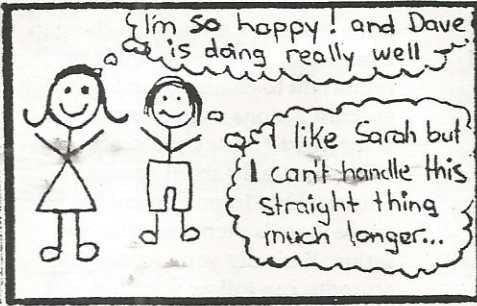 I'm so happy! and Dave
is doing really well
I like Sarah but
I can't handle this
straight thing
much longer...